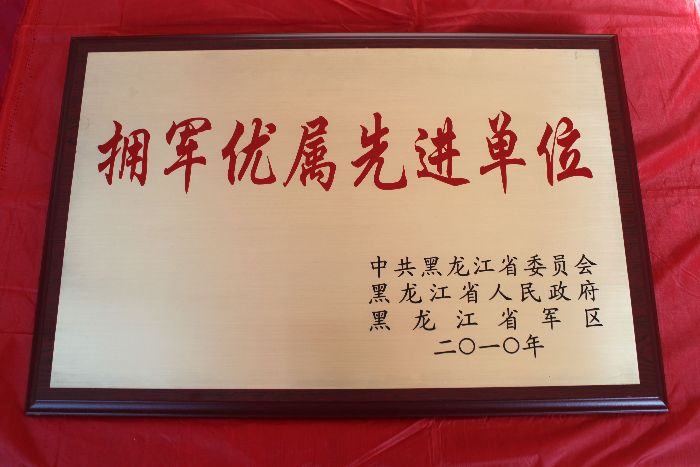 拥军优属先进单位
中共黑龙江省委员会
黑龙江省人民政府
黑龙江省军区
二〇一〇年